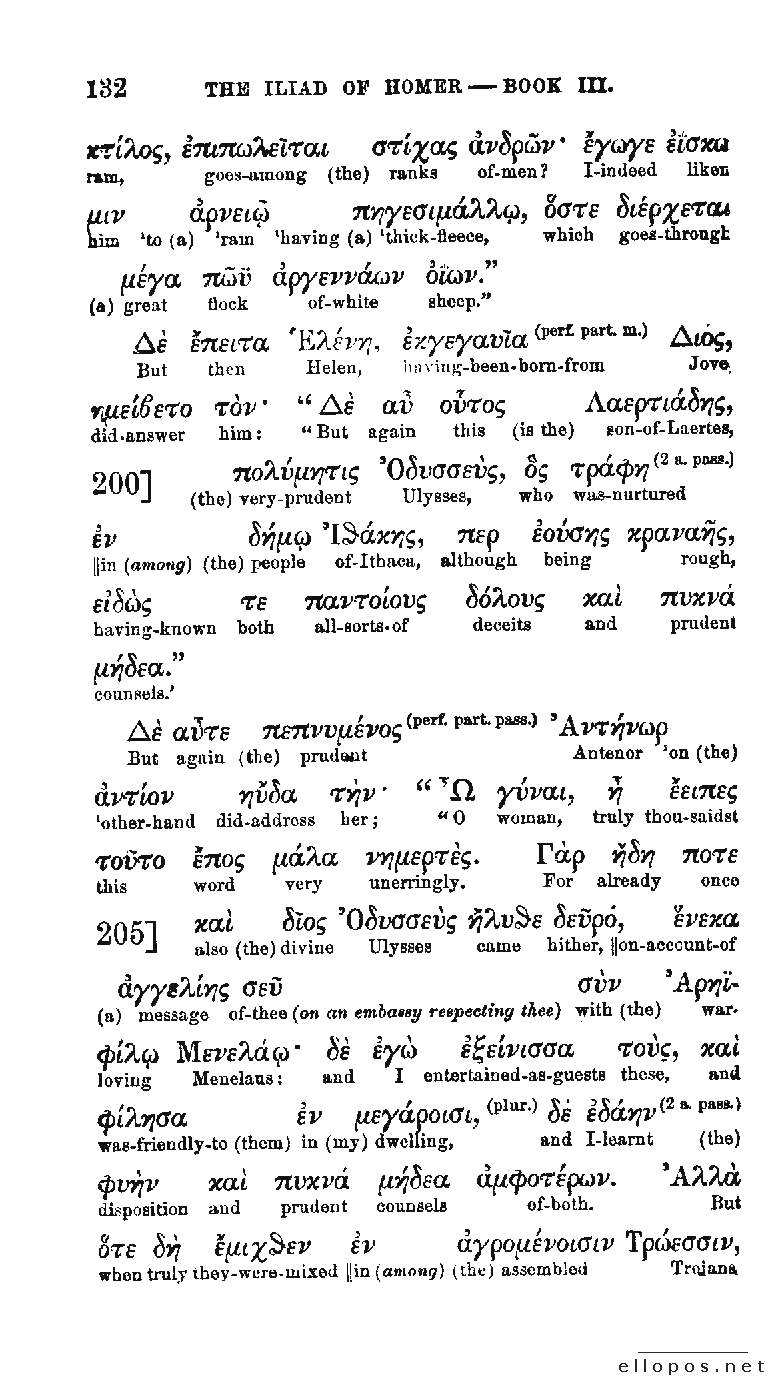 132 THE ILIAD OF HOMER — BOOK III.
κτίλος, ἐπιπωλεῖται στίχας ἀνδρῶν· ἔγωγε ἐΐσκω
ram, goes-among (the) ranks of-men? I-indeed liken
μιν ἀρνειῷ πηγεσιμάλλῳ, ὅστε διέρχεται
him ‘to (a) ’ram ‘having (a) ‘thick-fleece, which goes-through
μέγα πῶϋ ἀργεννάων ὀΐων.”
(a) great flock of-white sheep.”
Δὲ ἔπειτα Ἑλένη, ἐκγεγαυῖα (perf. part. m.) Διός,
But then Helen, having-been-born-from Jove,
ημείβετο τὸν· “Δὲ αὖ οὗτος Λαερτιάδης,
did-answer him: “But again this (is the) son-of-Laertes,
200] πολύμητις Ὀδυσσεὺς, ὃς τράφη (2 a. pass.)
(the) very-prudent Ulysses, who was-nurtured
ἐν δήμῳ Ἰθάκης, περ ἐούσης κραναῆς,
||in (among) (the) people of-Ithaca, although being rough,
εἰδὼς τε παντοίους δόλους καὶ πυκνά
having-known both all-sorts-of deceits and prudent
μήδεα.”
counsels.’
Δὲ αὖτε πεπνυμένος (perf. part. pass.) Ἀντήνωρ
But again (the) prudent Antenor ’on (the)
ἀντίον ηὔδα τὴν· “Ὦ γύναι, ἦ ἔειπες
‘other-hand did-address her; “O woman, truly thou-saidst
τοῦτο ἔπος μάλα νημερτὲς. Γὰρ ἤδη ποτε
this word very unerringly. For already once
205] καὶ δῖος Ὀδυσσεὺς ἤλυθε δεῦρό, ἕνεκα
also (the) divine Ulysses came hither, ||on-account-of
ἀγγελίης σεῦ σὺν Ἀρηϊ-
(a) message of-thee (on an embassy respecting thee) with (the) war-
φίλῳ Μενελάῳ· δὲ ἐγὼ ἐξείνισσα τοὺς, καὶ
loving Menelaus: and I entertained-as-guests these, and
φίλησα ἐν μεγάροισι, (plur.) δὲ ἐδάην (2 a. pass.)
was-friendly-to (them) in (my) dwelling, and I-learnt (the)
φυὴν καὶ πυκνά μήδεα ἀμφοτέρων. Ἀλλὰ
disposition and prudent counsels of-both. But
ὅτε δὴ ἔμιχθεν ἐν ἀγρομένοισιν Τρώεσσιν,
when truly they-were-mixed ||in (among) (the) assembled Trojans
ellopos.net